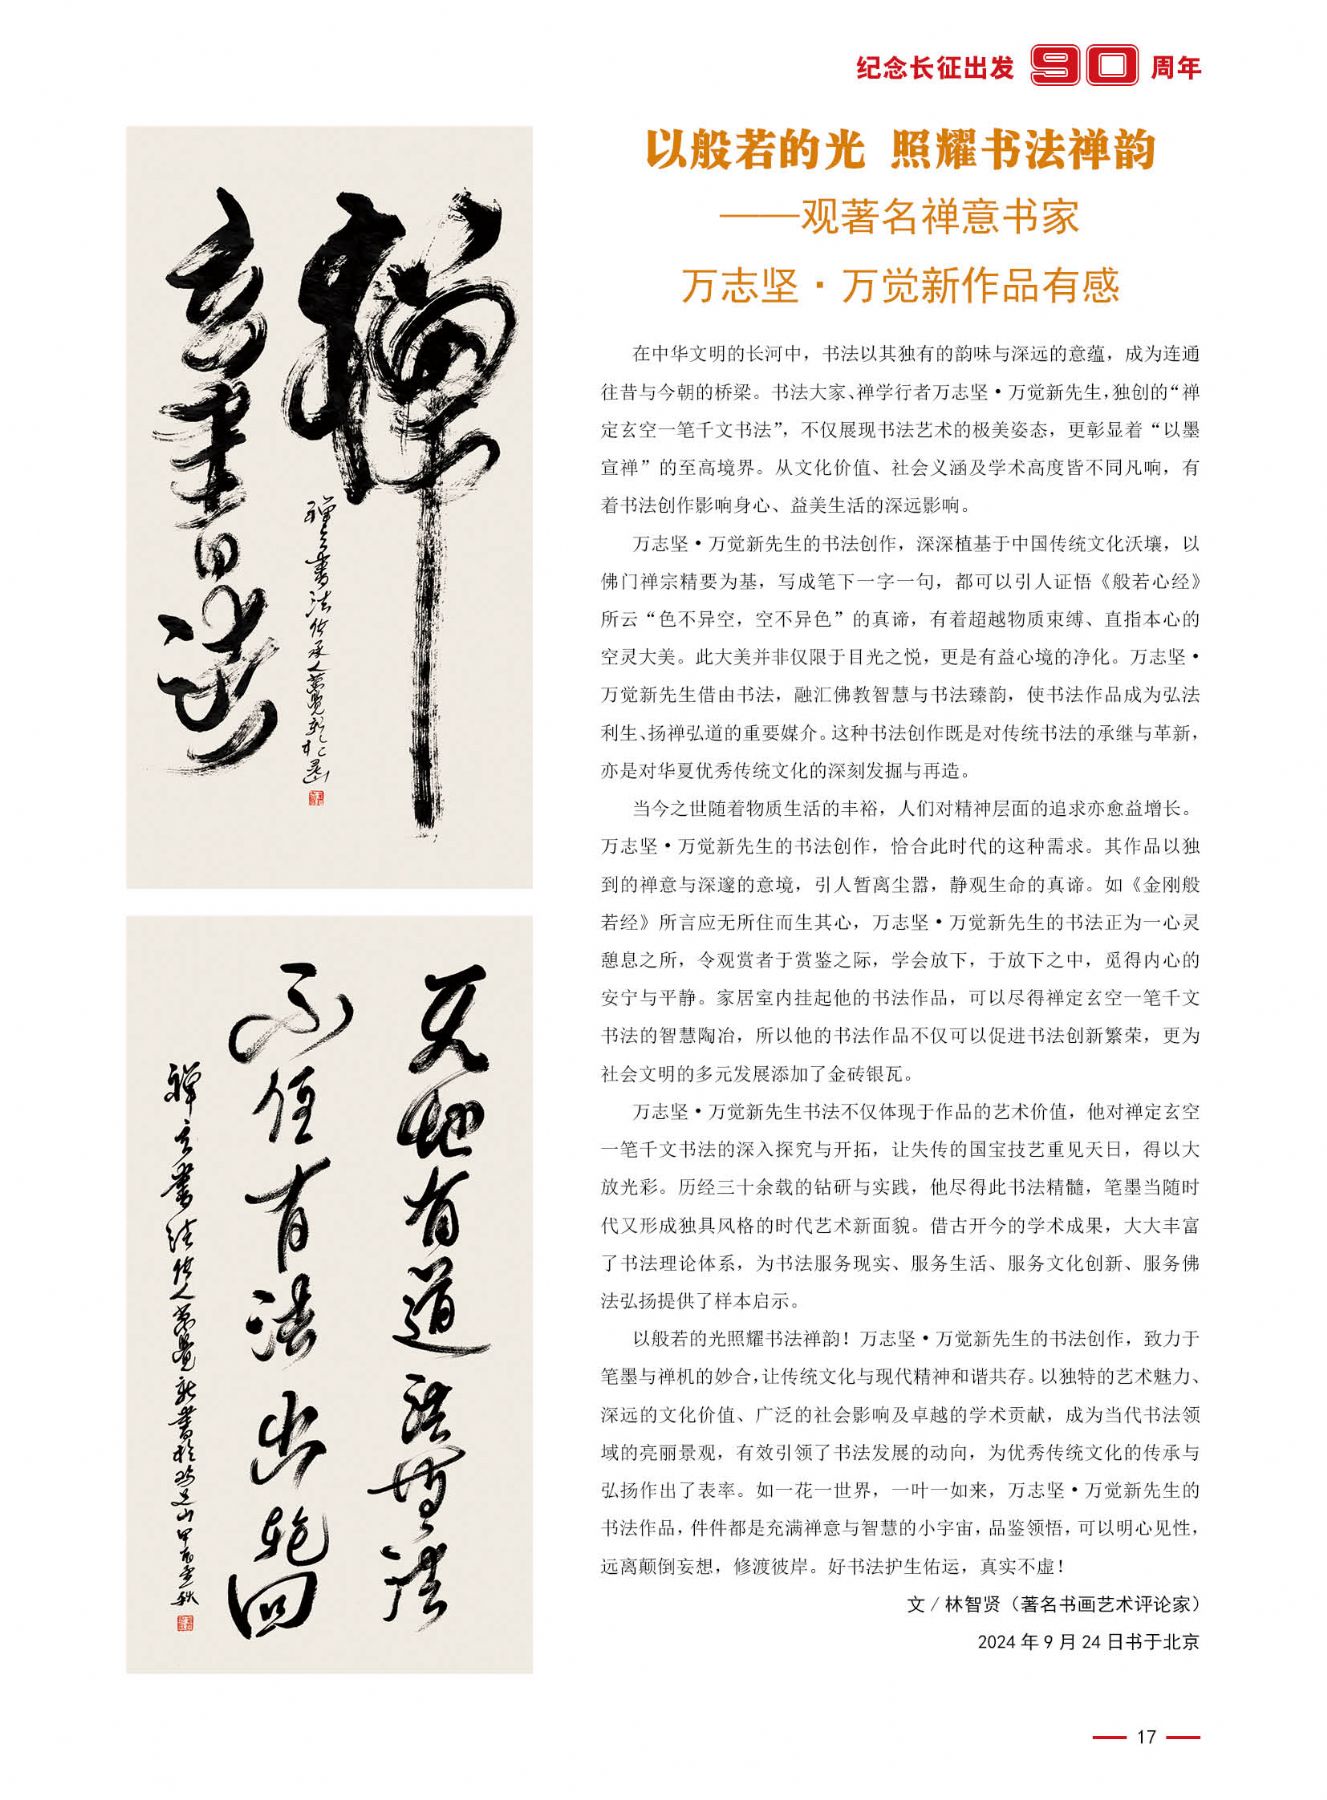 纪念长征出发90周年
以般若的光 照耀书法禅韵
——观著名禅意书家
万志坚·万觉新作品有感
在中华文明的长河中，书法以其独有的韵味与深远的意蕴，成为连通
往昔与今朝的桥梁。书法大家、禅学行者万志坚·万觉新先生，独创的“禅
定玄空一笔千文书法”，不仅展现书法艺术的极美姿态，更彰显着“以墨
宣禅”的至高境界。从文化价值、社会义涵及学术高度皆不同凡响，有
着书法创作影响身心、益美生活的深远影响。
万志坚·万觉新先生的书法创作，深深植基于中国传统文化沃壤，以
佛门禅宗精要为基，写成笔下一字一句，都可以引人证悟《般若心经》
所云“色不异空，空不异色”的真谛，有着超越物质束缚、直指本心的
空灵大美。此大美并非仅限于目光之悦，更是有益心境的净化。万志坚·
万觉新先生借由书法，融汇佛教智慧与书法臻韵，使书法作品成为弘法
利生、扬禅弘道的重要媒介。这种书法创作既是对传统书法的承继与革新，
亦是对华夏优秀传统文化的深刻发掘与再造。
当今之世随着物质生活的丰裕，人们对精神层面的追求亦愈益增长。
万志坚·万觉新先生的书法创作，恰合此时代的这种需求。其作品以独
到的禅意与深邃的意境，引人暂离尘嚣，静观生命的真谛。如《金刚般
若经》所言应无所住而生其心，万志坚·万觉新先生的书法正为一心灵
憩息之所，令观赏者于赏鉴之际，学会放下，于放下之中，觅得内心的
安宁与平静。家居室内挂起他的书法作品，可以尽得禅定玄空一笔千文
书法的智慧陶冶，所以他的书法作品不仅可以促进书法创新繁荣，更为
社会文明的多元发展添加了金砖银瓦。
万志坚·万觉新先生书法不仅体现于作品的艺术价值，他对禅定玄空
一笔千文书法的深入探究与开拓，让失传的国宝技艺重见天日，得以大
放光彩。历经三十余载的钻研与实践，他尽得此书法精髓，笔墨当随时
代又形成独具风格的时代艺术新面貌。借古开今的学术成果，大大丰富
了书法理论体系，为书法服务现实、服务生活、服务文化创新、服务佛
法弘扬提供了样本启示。
以般若的光照耀书法禅韵！万志坚·万觉新先生的书法创作，致力于
笔墨与禅机的妙合，让传统文化与现代精神和谐共存。以独特的艺术魅力、
深远的文化价值、广泛的社会影响及卓越的学术贡献，成为当代书法领
域的亮丽景观，有效引领了书法发展的动向，为优秀传统文化的传承与
弘扬作出了表率。如一花一世界，一叶一如来，万志坚·万觉新先生的
书法作品，件件都是充满禅意与智慧的小宇宙，品鉴领悟，可以明心见性，
远离颠倒妄想，修渡彼岸。好书法护生佑运，真实不虚！
文/林智贤（著名书画艺术评论家）
2024年9月24日书于北京
禅
玄書法
无地有道
不住有法出轮回
17